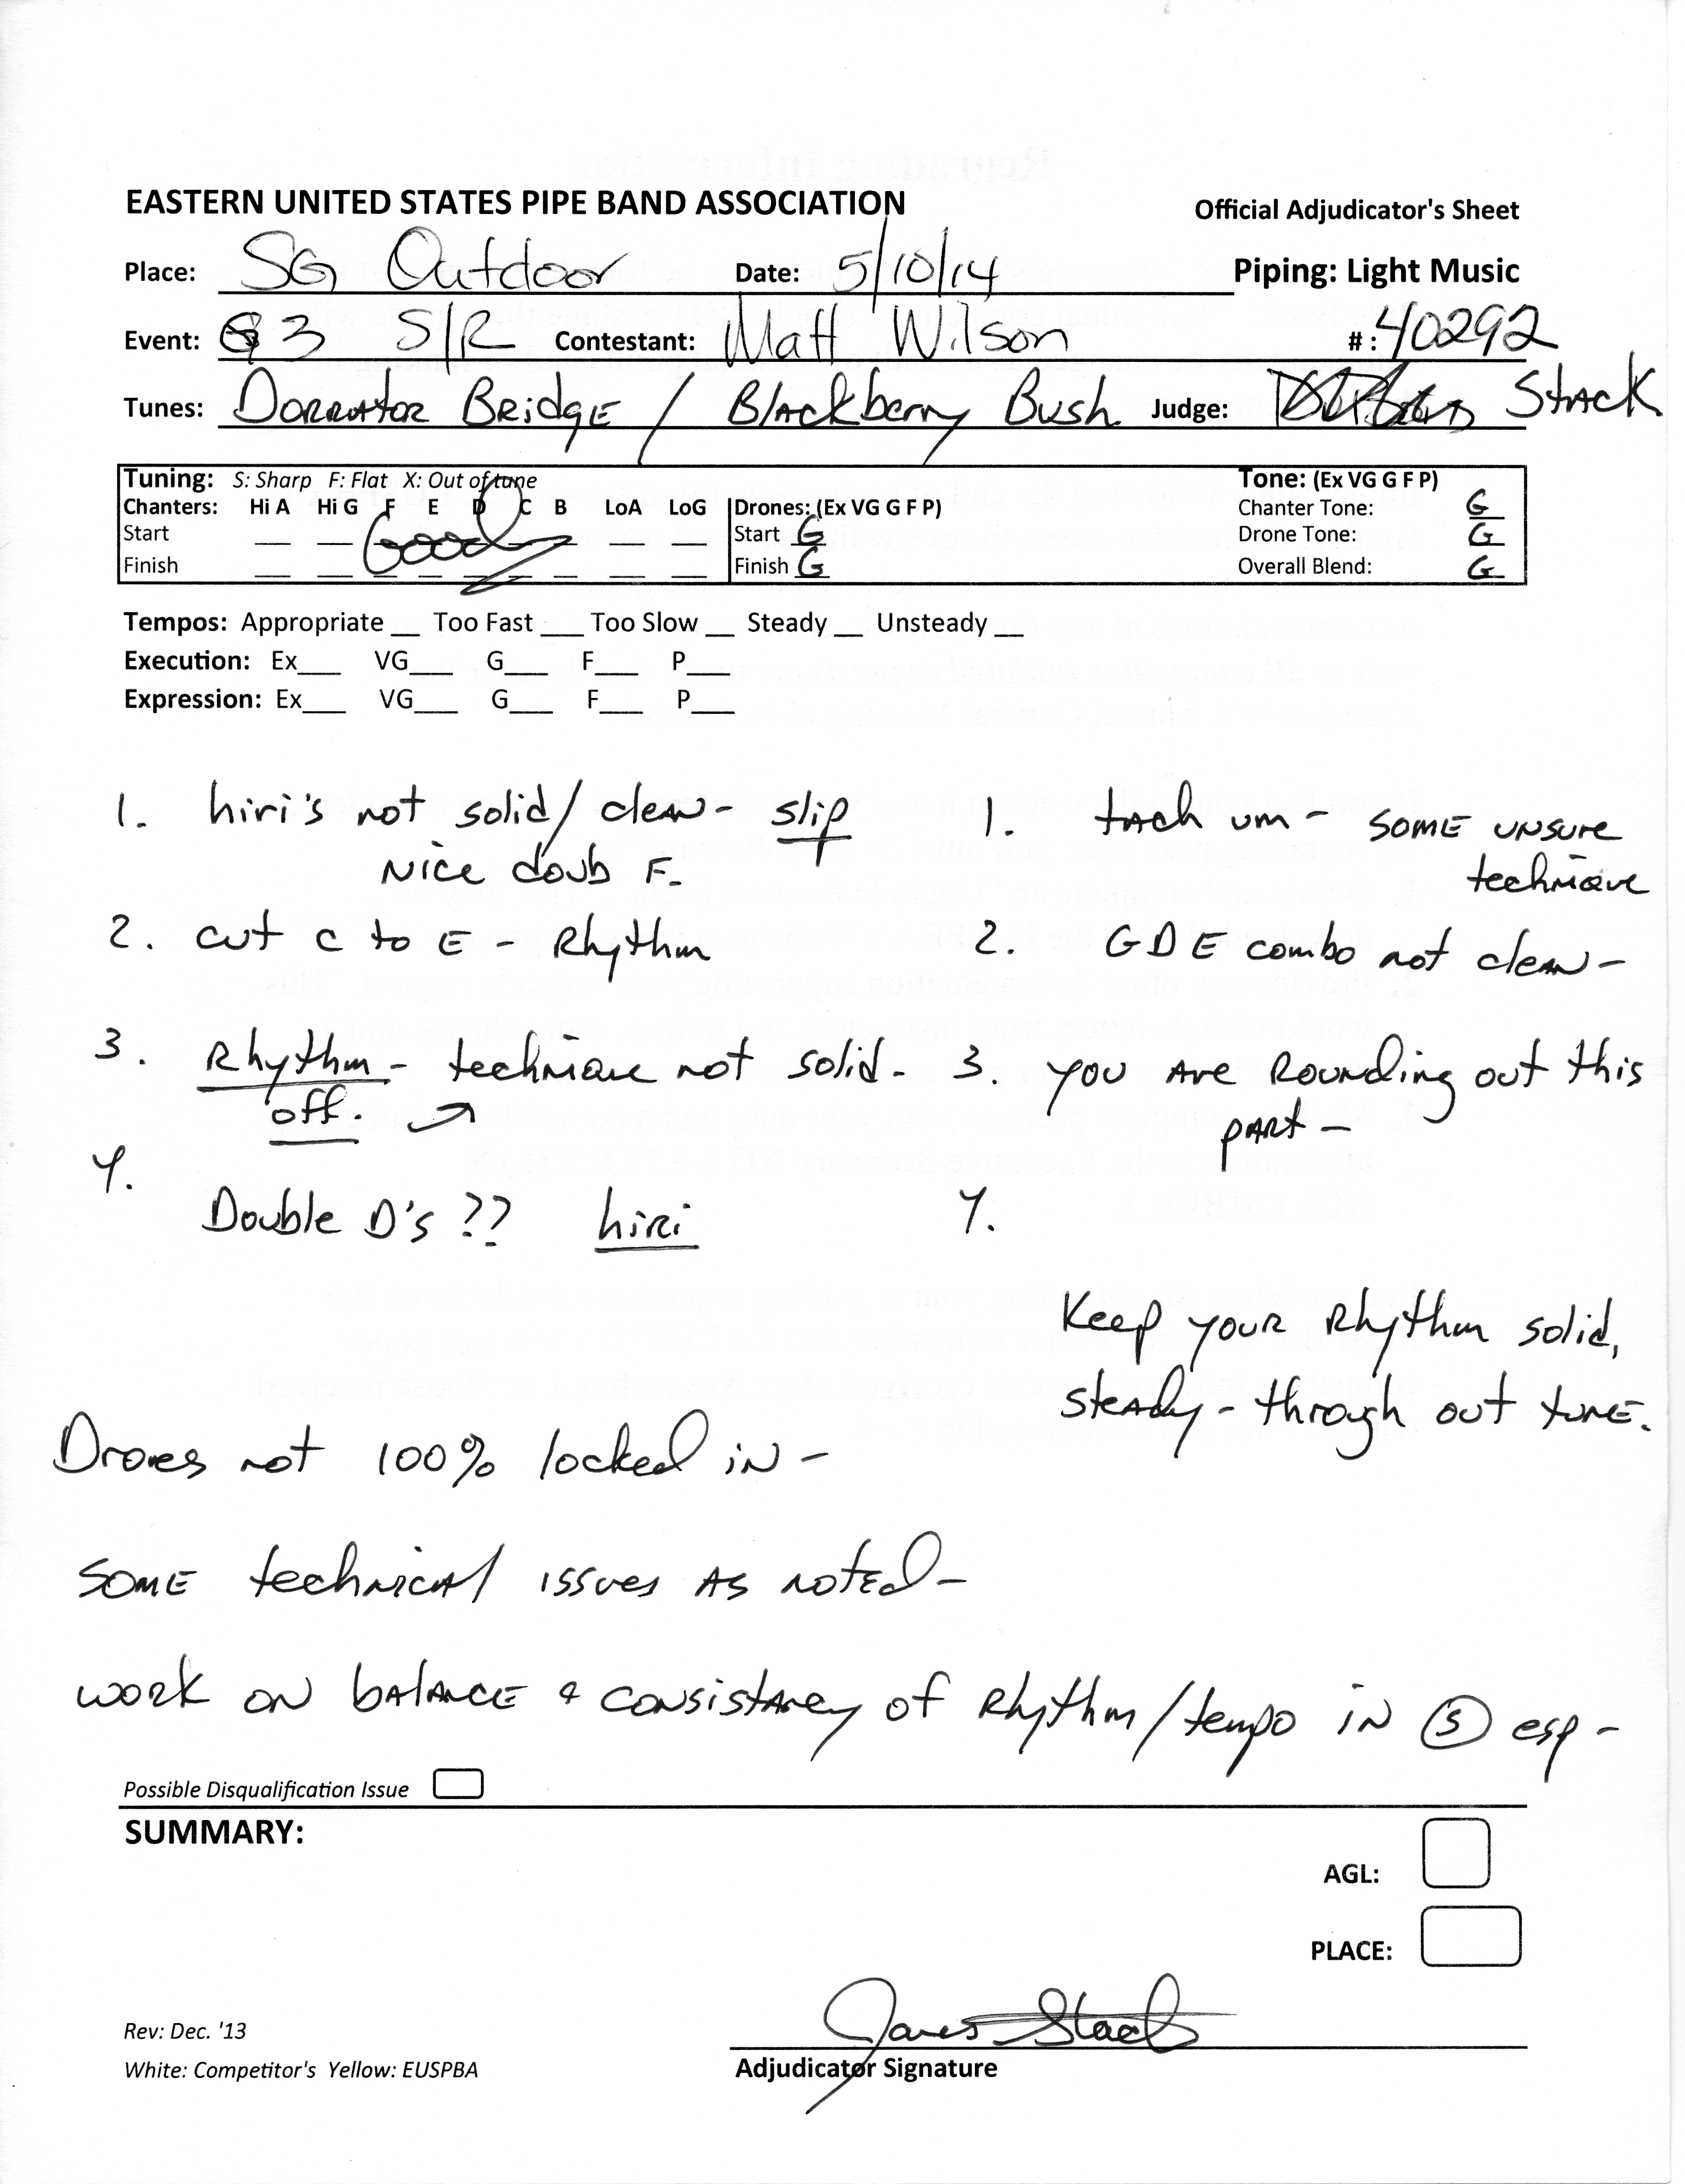 EASTERN UNITED STATES PIPE BAND ASSOCIATION Official Adjudicator's Sheet
Place: SG Outdoor Date: 5/10/14 Piping: Light Music
Event: G3 S/R Contestant: Matt Wilson #: 40292
Tunes: Dorrator Bridge / Blackberry Bush Judge: Stack
Tuning: S: Sharp F: Flat X: Out of tune Tone: (Ex VG G F P)
Chanters: Hi A Hi G F E D C B LoA LoG Drones: (Ex VG G F P) Chanter Tone: G
Start Good Start G Drone Tone: G
Finish Finish G Overall Blend: G
Tempos: Appropriate __ Too Fast __ Too Slow __ Steady __ Unsteady __
Execution: Ex___ VG___ G___ F___ P___
Expression: Ex___ VG___ G___ F___ P___
1. hiri's not solid/clean - slip
Nice doub F.
2. cut C to E - Rhythm
3. Rhythm - technique not solid.
off.
4.
Double D's ?? hiri
1. tach um - some unsure
technique
2. GDE combo not clean -
3. you are Rounding out this
part -
4.
Keep your Rhythm solid,
steady - through out tune.
Drones not 100% locked in -
some technical issues as noted -
work on balance & consistancy of Rhythm/tempo in S esp -
Possible Disqualification Issue
SUMMARY:
AGL:
PLACE:
James Stack
Rev: Dec. '13
White: Competitor's Yellow: EUSPBA Adjudicator Signature